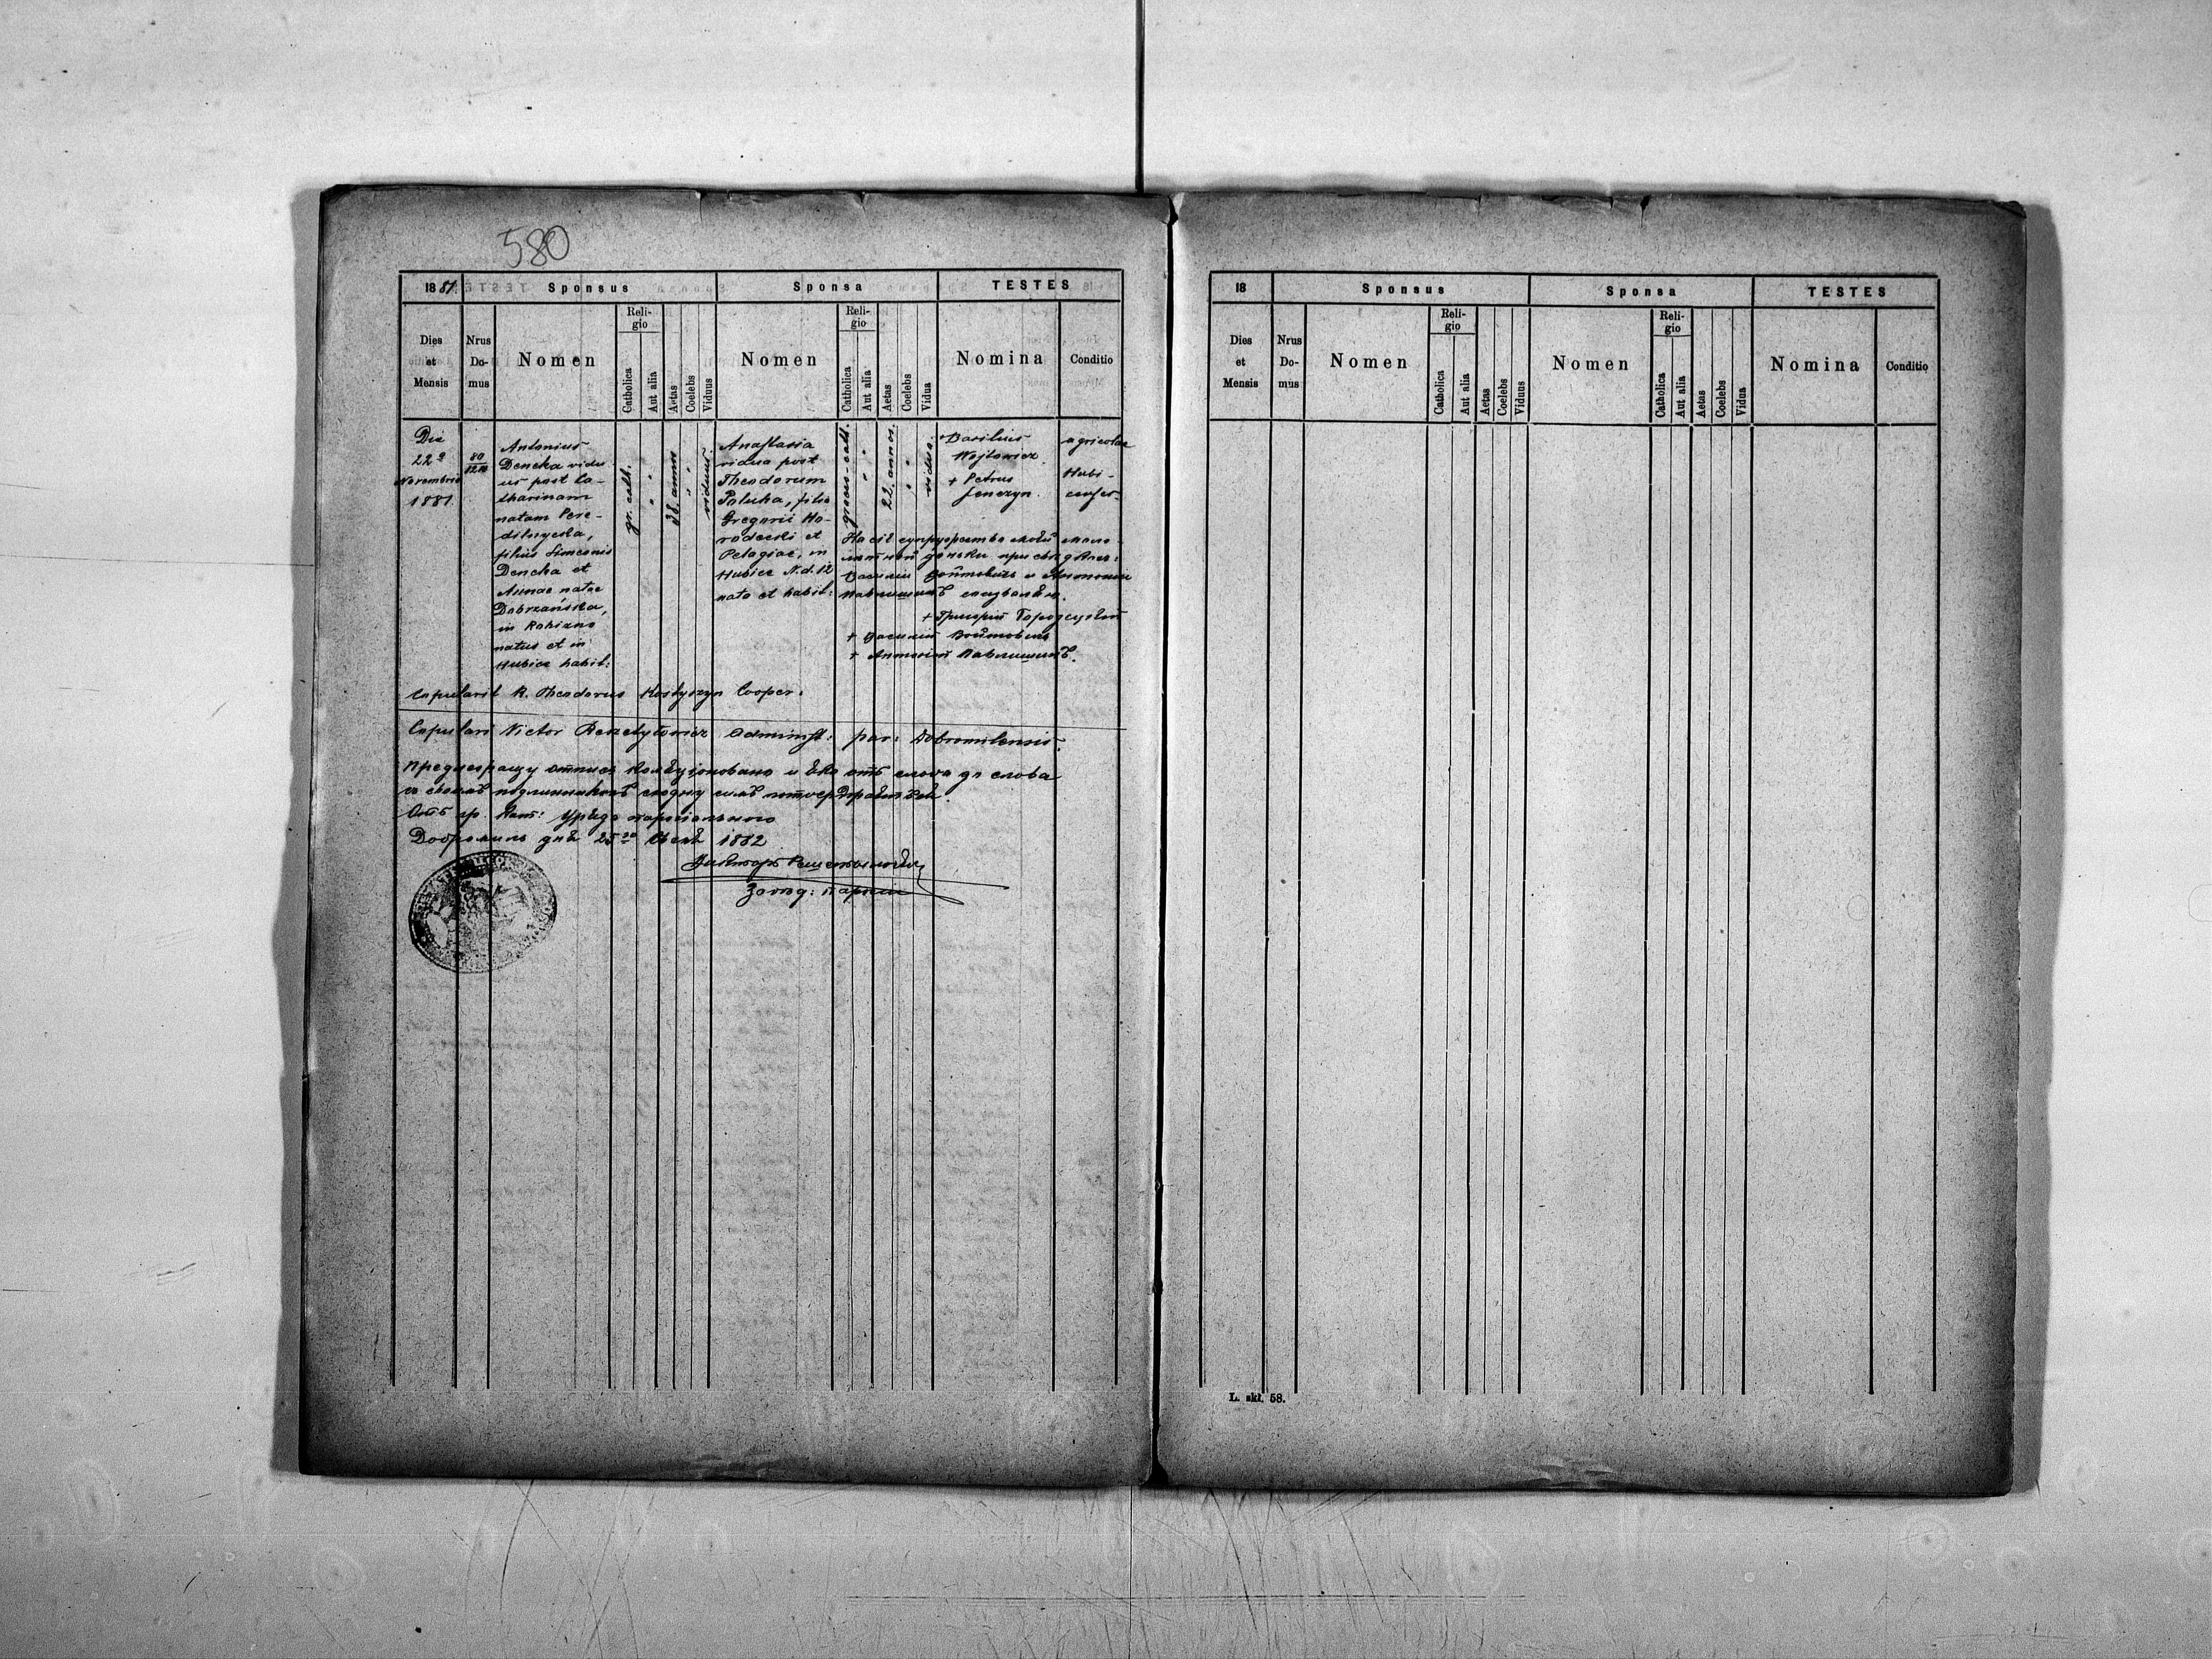 580
1881. Sponsus Sponsa TESTES
Dies et Mensis
Nrus Do-mus
Nomen
Religio
Catholica
Aut alia
Aetas
Coelebs
Viduus
Nomen
Religio
Catholica
Aut alia
Aetas
Coelebs
Vidua
Nomina
Conditio
Die
22a
Novembris
1881.
80
Antonius
Dencha vidu
us post Ca-
tharinam
natam Pere-
dilnycka,
filius Simeonis
Dencha et
Annae natae
Dobrzańska,
in
natus et in
Hubice habit:
gr. cath.
38. annor
viduus.
Anastasia
vidua post
Theodorum
filia
Gregorii Ho-
rodecki et
Pelagiae, in
Hubice N.d. 12
nata et habit:
graeco-cath.
22. annor.
vidua.
+ Basilius
Wojtowicz
+ Petrus
agricolae
Hubi-
На сіе супружество моей мало-
лѣтной доньки при свидѣтел:
Василіи Войтовичъ и Антоніи
Павлишинъ соизволяю.
+ Григорій Городецкій
+ Василій Войтовичъ
+ Антоній Павлишинъ.
Copulavit R. Theodorus Kostyszyn Cooper.
Victor Reszetyłowicz Administ: par: Dobromilensis.
слова до слова
Отъ гр. кат: Уряда парохіального
Добромиль дня 25го 1882
Викторъ Решетиловичъ
Завѣд: парохіи
18 Sponsus Sponsa TESTES
Dies et Mensis
Nrus Do-mus
Nomen
Religio
Catholica
Aut alia
Aetas
Coelebs
Viduus
Nomen
Religio
Catholica
Aut alia
Aetas
Coelebs
Vidua
Nomina
Conditio
L. skł. 58.